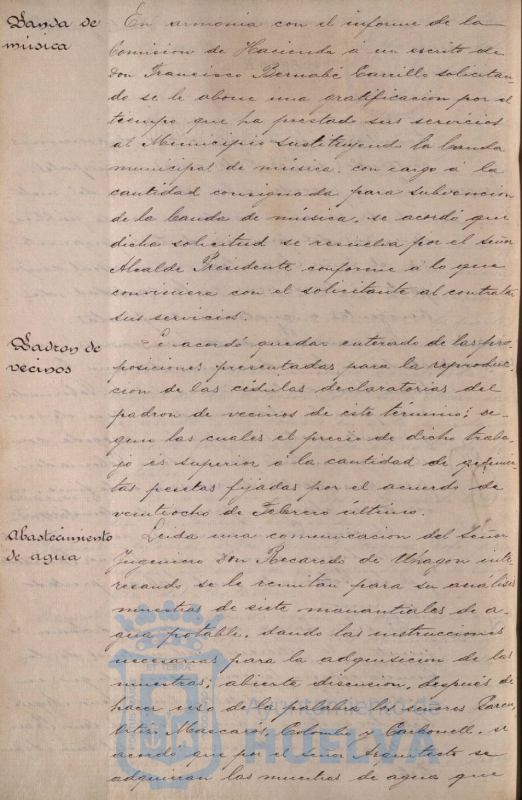 Banda de
música
En armonia con el informe de la
Comision de Hacienda á un escrito de
Don Francisco Bernabé Carrillo solicitan-
do se le abone una gratificacion por el
tiempo que ha prestado sus servicios
al Municipio sustituyendo la banda
municipal de música, con cargo á la
cantidad consignada para subvencion
de la banda de música, se acordó que
dicha solicitud se resuelva por el señor
Alcalde Presidente conforme á lo que
conviniera con el solicitante al contratar
sus servicios.
Padron de
vecinos
Se acordó quedar enterado de las pro-
posiciones presentadas para la reproduc-
cion de las cédulas declaratorias del
padron de vecinos de este término; se-
gun las cuales el precio de dicho traba-
jo es superior á la cantidad de
tas pesetas fijadas por el acuerdo de
veintiocho de Febrero último.
Abastecimiento
de agua
Leida una comunicacion del Señor
Ingeniero Don Recaredo de Uhagon inte-
resando se le remitan para su análisis
muestras de siete manantiales de a-
gua potable, dando las instrucciones
necesarias para la adquisicion de las
muestras, abierta discusion, despues de
hacer uso de la palabra los señores Garcia
Mascarós, Colombo y Carbonell, se
acordó que por el señor Arquitecto se
adquieran las muestras de agua que
HUELVA